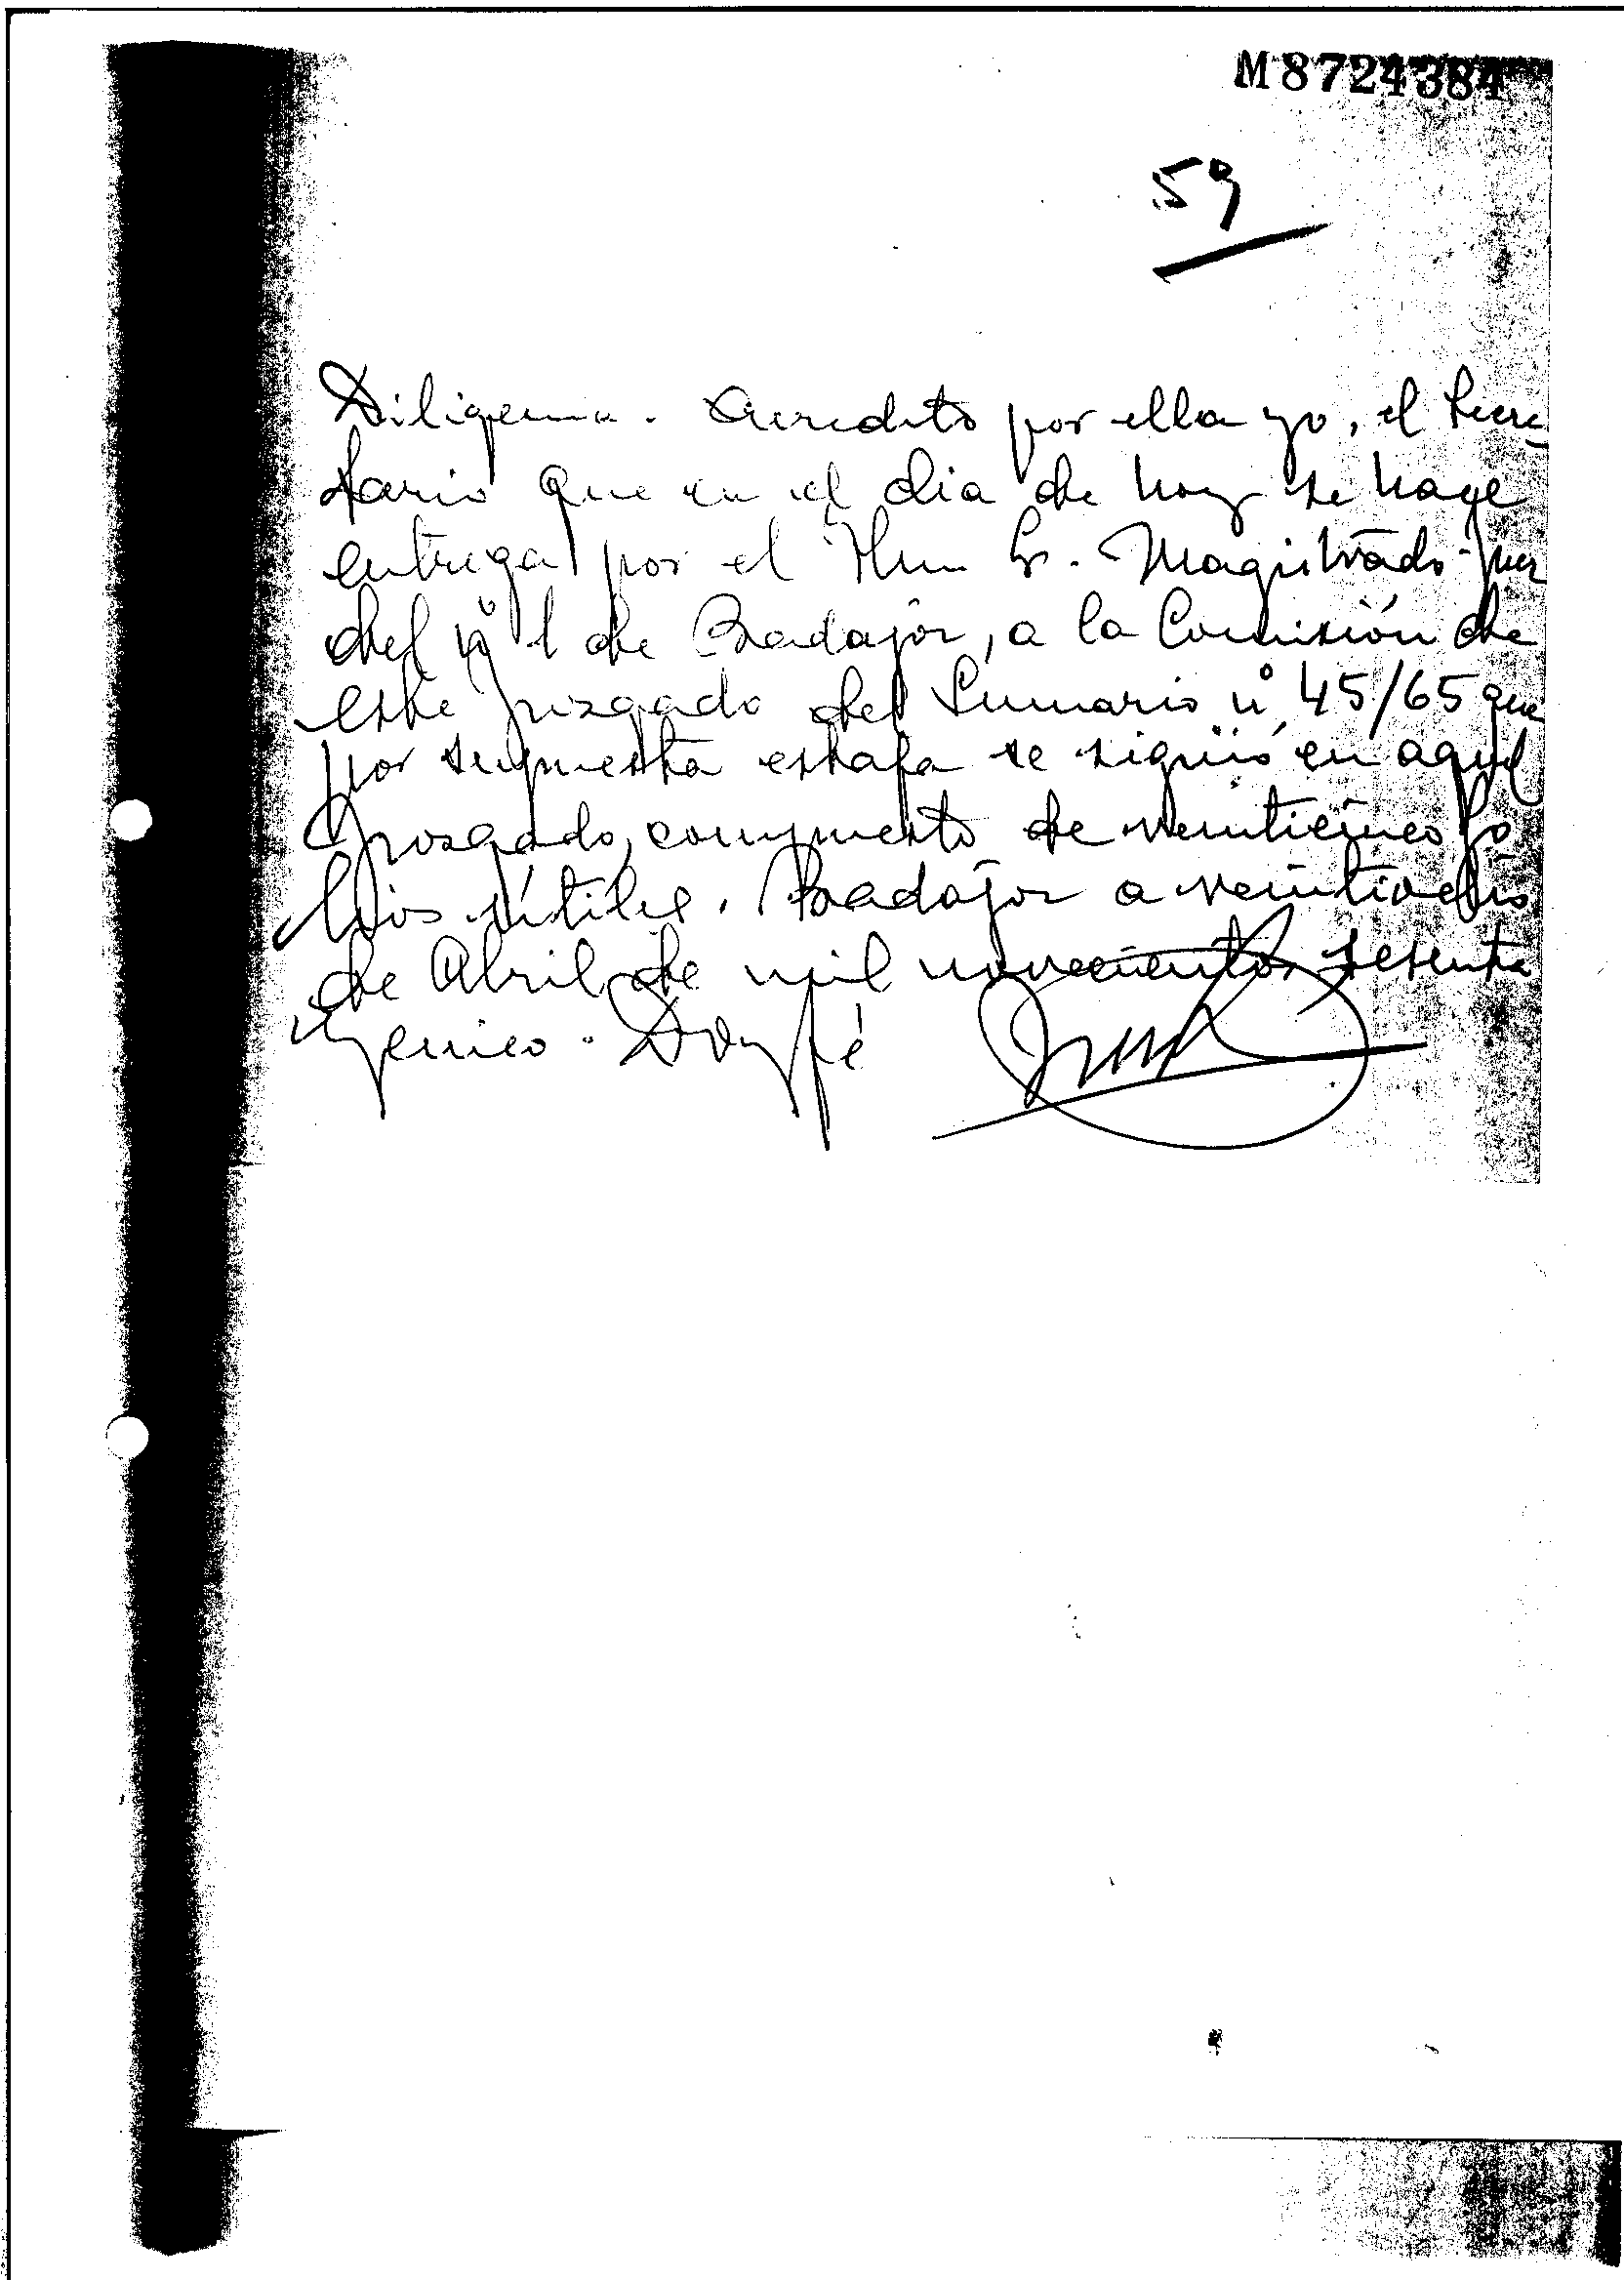 M8724384
59
Diligencia. Acredito por ella yo, el Secre
tario que en el dia de hoy se hace
entrega por el Ilmo Sr. Magistrado-Juez
del nº 1 de Badajoz, a la Comisión de
este Juzgado del Sumario nº 45/65 que
por supuesta estafa se siguió en aquel
Juzgado, compuesto de veinticinco fo
lios útiles. Badajoz a veintiocho
de Abril de mil novecientos sesenta
y cinco. Doy fé